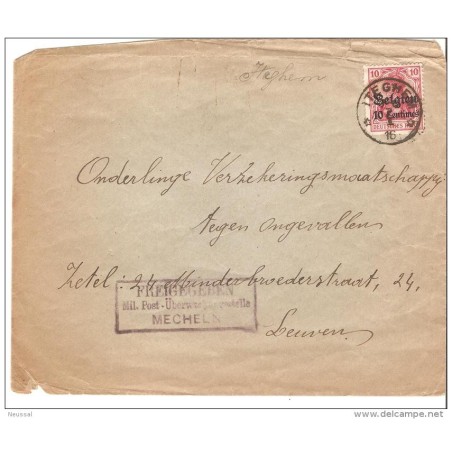 Iteghem
10 10
Belgien
10 Centimes
DEUTSCHES
ITEGHEM
16
Onderlinge Verzekeringsmaatschappij
tegen ongevallen
Zetel: 24 Minderbroederstraat, 24,
Leuven.
FREIGEGEBEN
Mil. Post-Überwachungsstelle
MECHELN
Neussal
delcampe.net